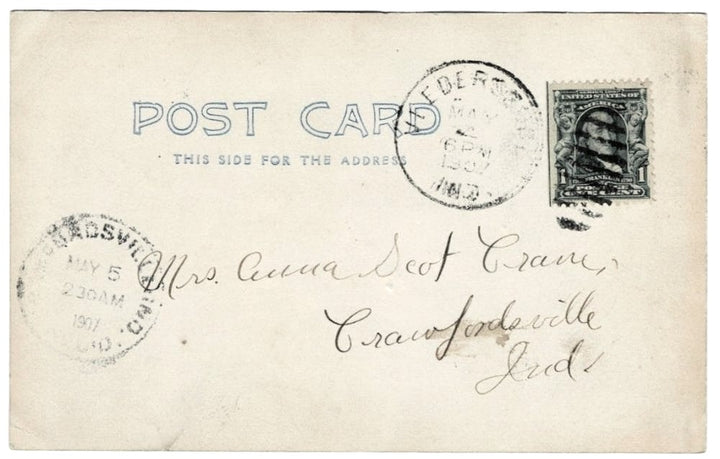 POST CARD
THIS SIDE FOR THE ADDRESS
VEEDERSBURG
MAY
6 PM
1907
IND.
UNITED STATES OF
AMERICA
FRANKLIN
1 ONE CENT 1
MAY 5
2 30 AM
1907
IND.
Mrs. Anna Scot Crane,
Crawfordsville
Ind.